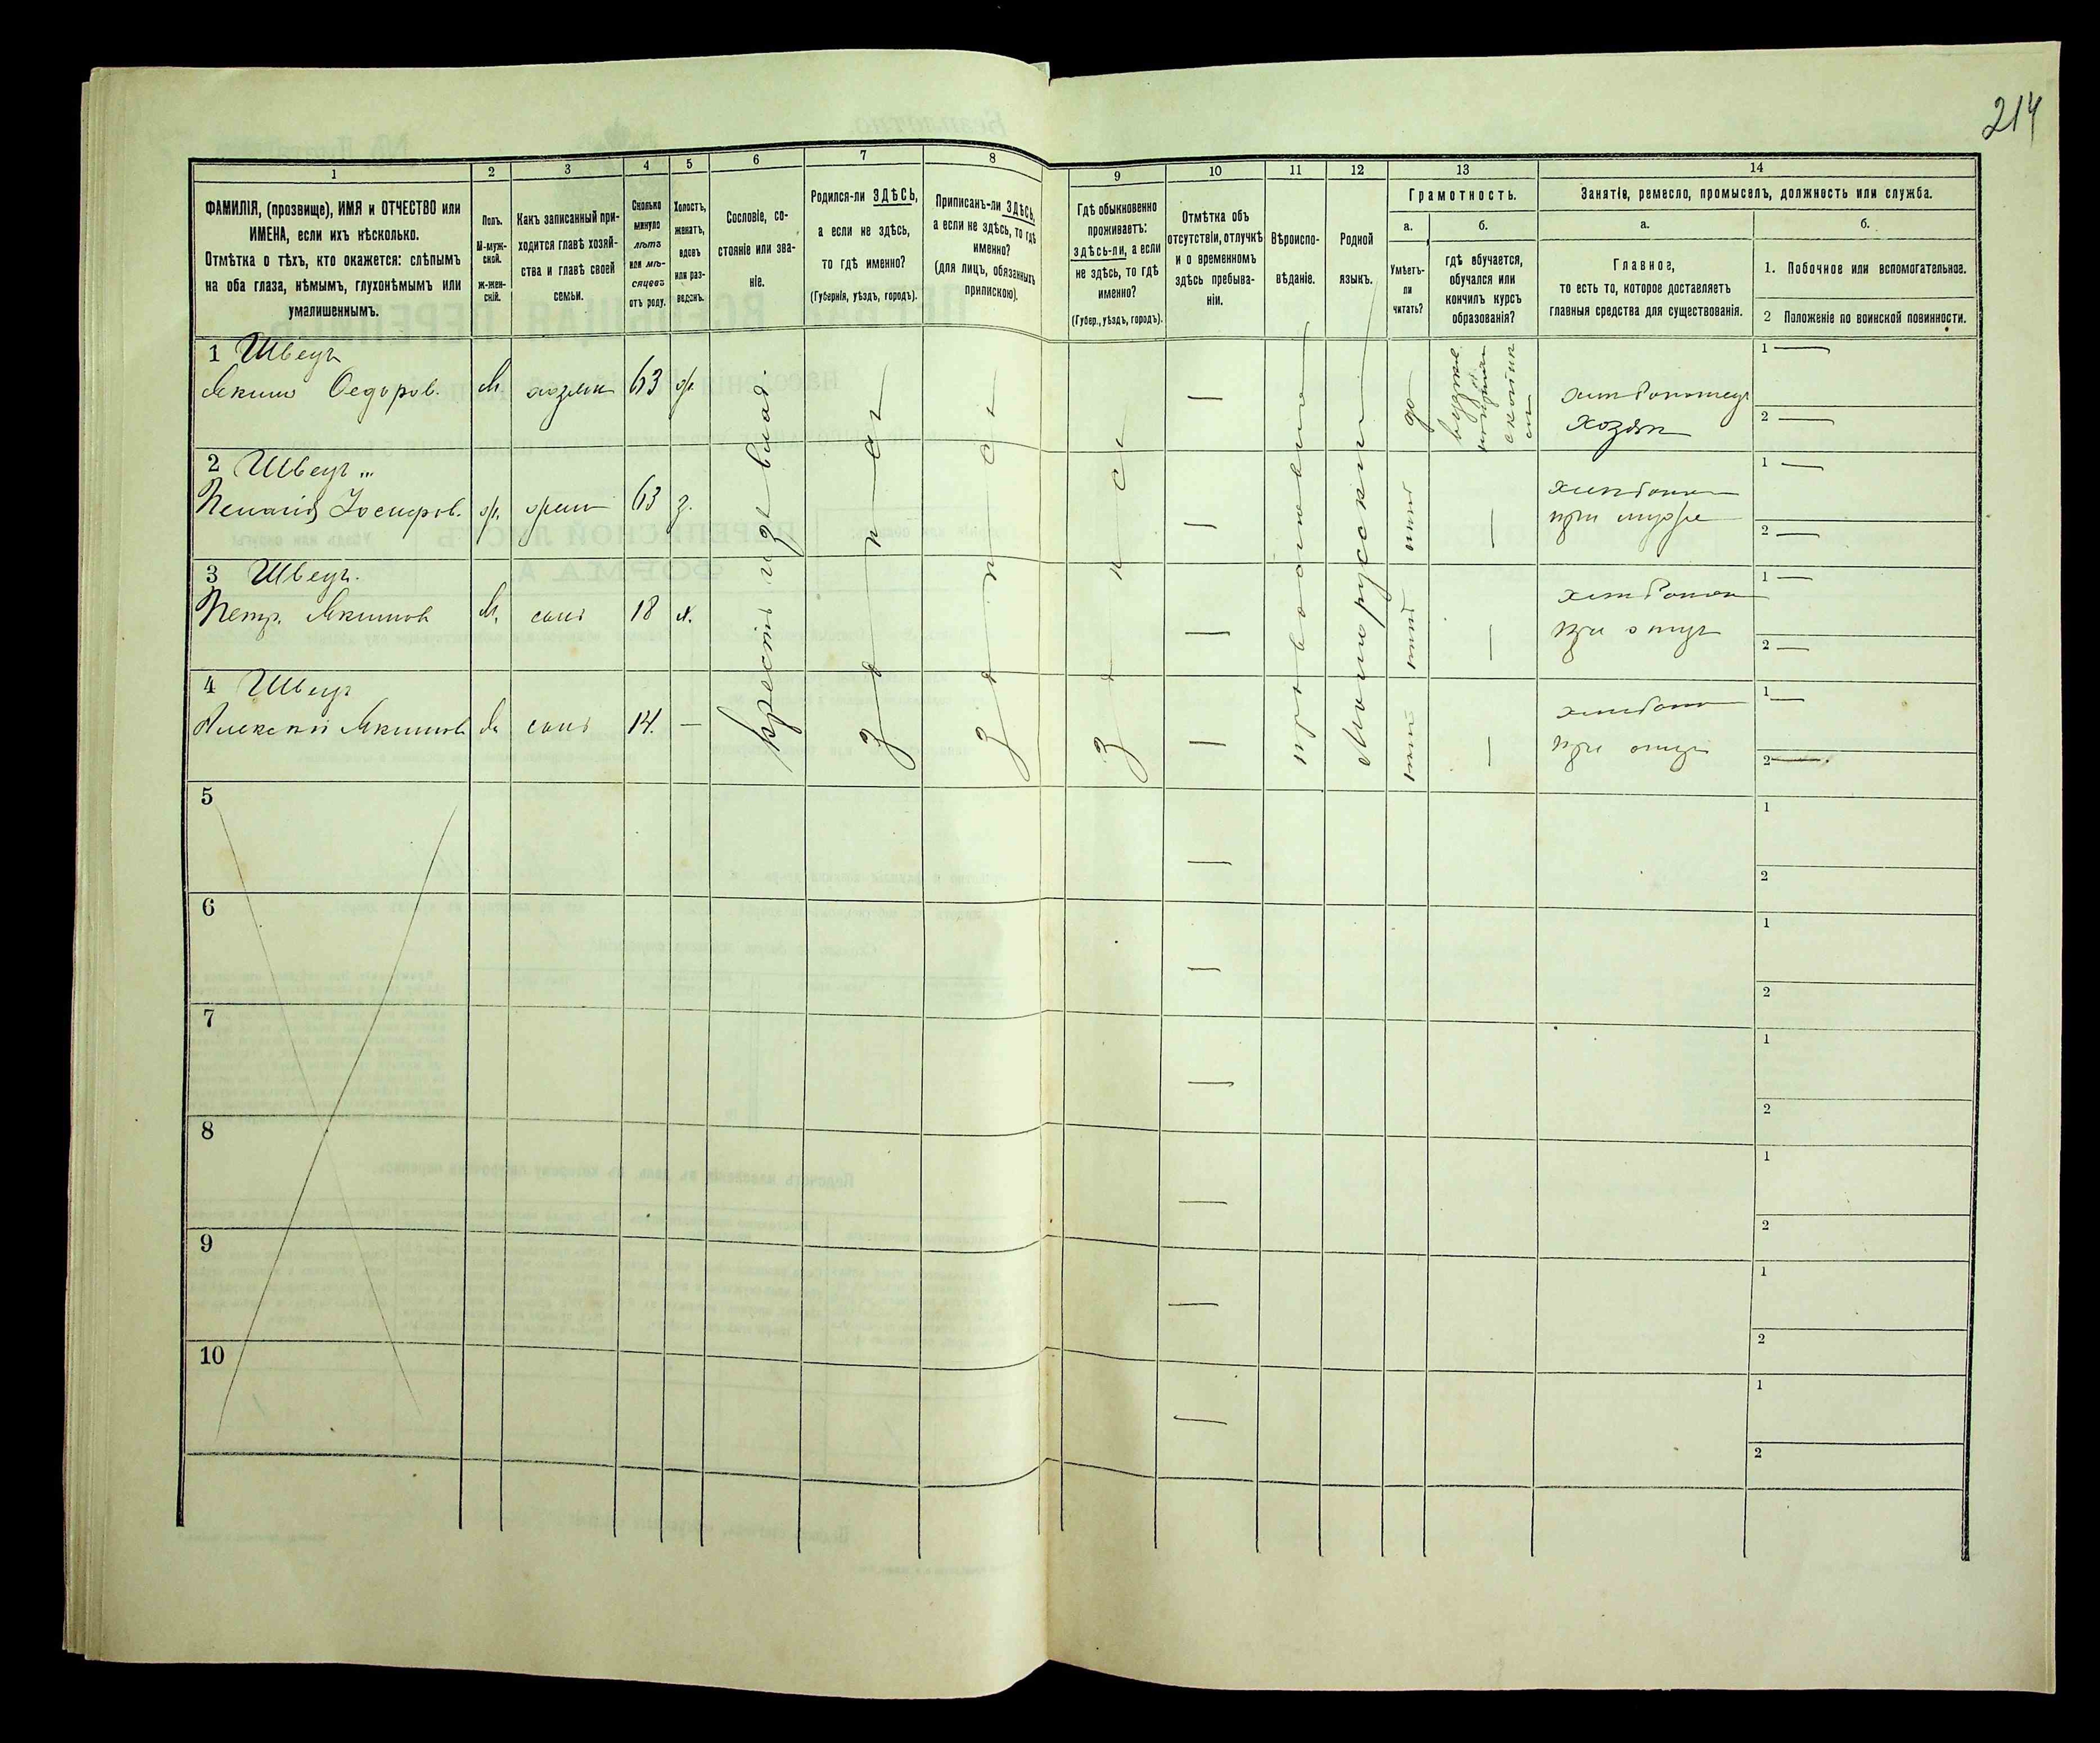 214
1 2 3 4 5 6 7 8 9 10 11 12 13 14
ФАМИЛІЯ, (прозвище), ИМЯ и ОТЧЕСТВО или
ИМЕНА, если ихъ нѣсколько.
Отмѣтка о тѣхъ, кто окажется: слѣпымъ
на оба глаза, нѣмымъ, глухонѣмымъ или
умалишеннымъ.
Полъ.
М-муж-
ской.
Ж-жен-
скій.
Какъ записанный при-
ходится главѣ хозяй-
ства и главѣ своей
семьи.
Сколько
минуло
лѣтъ
или мѣ-
сяцевъ
отъ роду.
Холостъ,
женатъ,
вдовъ
или раз-
веденъ.
Сословіе, со-
стояніе или зва-
ніе.
Родился-ли ЗДѢСЬ,
а если не здѣсь,
то гдѣ именно?
(Губернія, уѣздъ, городъ).
Приписанъ-ли ЗДѢСЬ,
а если не здѣсь, то гдѣ
именно?
(для лицъ, обязанныхъ
припискою).
Гдѣ обыкновенно
проживаетъ:
здѣсь-ли, а если
не здѣсь, то гдѣ
именно?
(Губер., уѣздъ, городъ).
Отмѣтка объ
отсутствіи, отлучкѣ
и о временномъ
здѣсь пребыва-
ніи.
Вѣроиспо-
вѣданіе.
Родной
языкъ.
Грамотность.
а. б.
Умѣетъ-
ли
читать?
гдѣ обучается,
обучался или
кончилъ курсъ
образованія?
Занятіе, ремесло, промыселъ, должность или служба.
а. б.
Главное,
то есть то, которое доставляетъ
главныя средства для существованія.
1. Побочное или вспомогательное.
2 Положеніе по воинской повинности.
1 Швецъ
Якимъ Федоров. М хозяин 63 ж.
хозяин
1 —
2 —
2 Швецъ
ж. жена 63 з.
при мужѣ
1 —
2 —
3 Швецъ.
Петр. Якимов М. сынъ 18 х.
при отцѣ
1 —
2 —
4 Швецъ
Алексѣй Якимов М. сынъ 14. —
при отцѣ
1 —
2 —
Крестьян. изъ влад.
здѣсь
здѣсь
здѣсь
православное
Малорусскій
да
нѣтъ
нѣтъ
нѣтъ
5
1
2
6
1
2
7
1
2
8
1
2
9
1
2
10
1
2